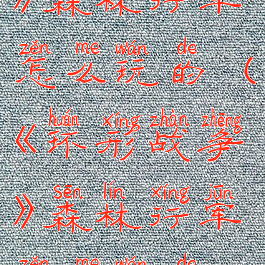 》森林行军
zěn me wán de
怎么玩的（
huán xíng zhàn zhēng
《环形战争
sēn lín xíng jūn
》森林行军
zěn me wán de